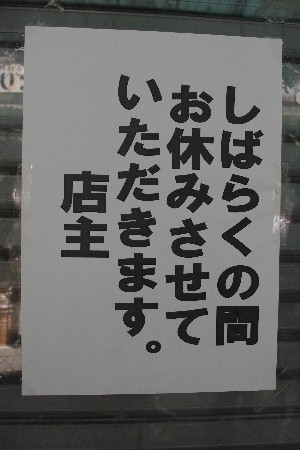 しばらくの間
お休みさせて
いただきます。
店主